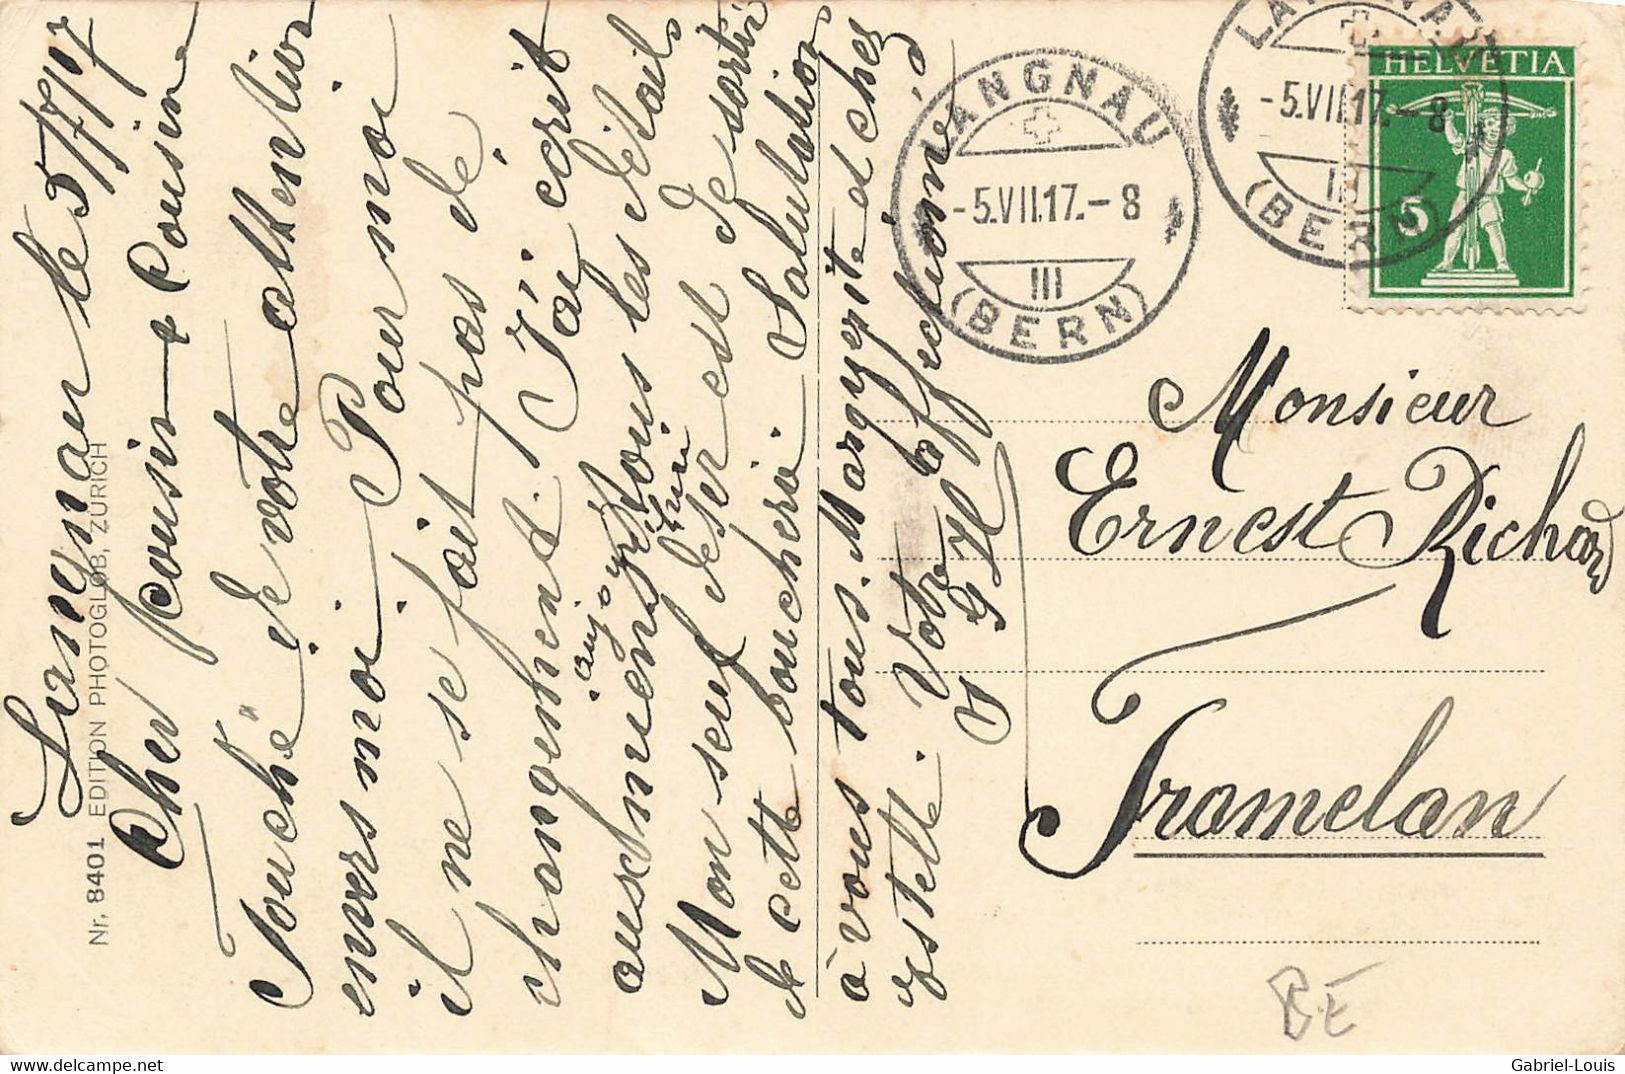 Langnau le 5/7/17
Cher cousin & Cousine
Touché de votre attention
envers moi. Pour moi
il ne se fait pas de
changement. J'ai écrit
aux miens aujourd'hui tous les détails
Mon seul désir est de sortir
de cette boucherie. Salutation
à vous tous. Marguerite et chez
Estelle. Votre affectionné
Nr. 8401 EDITION PHOTOGLOB, ZÜRICH
LANGNAU
-5.VII.17.-8
III
(BERN)
LANGNAU
-5.VII.17.-8
III
(BERN)
HELVETIA
5
Monsieur
Ernest Richard
Tramelan
BE
Gabriel-Louis
www.delcampe.net